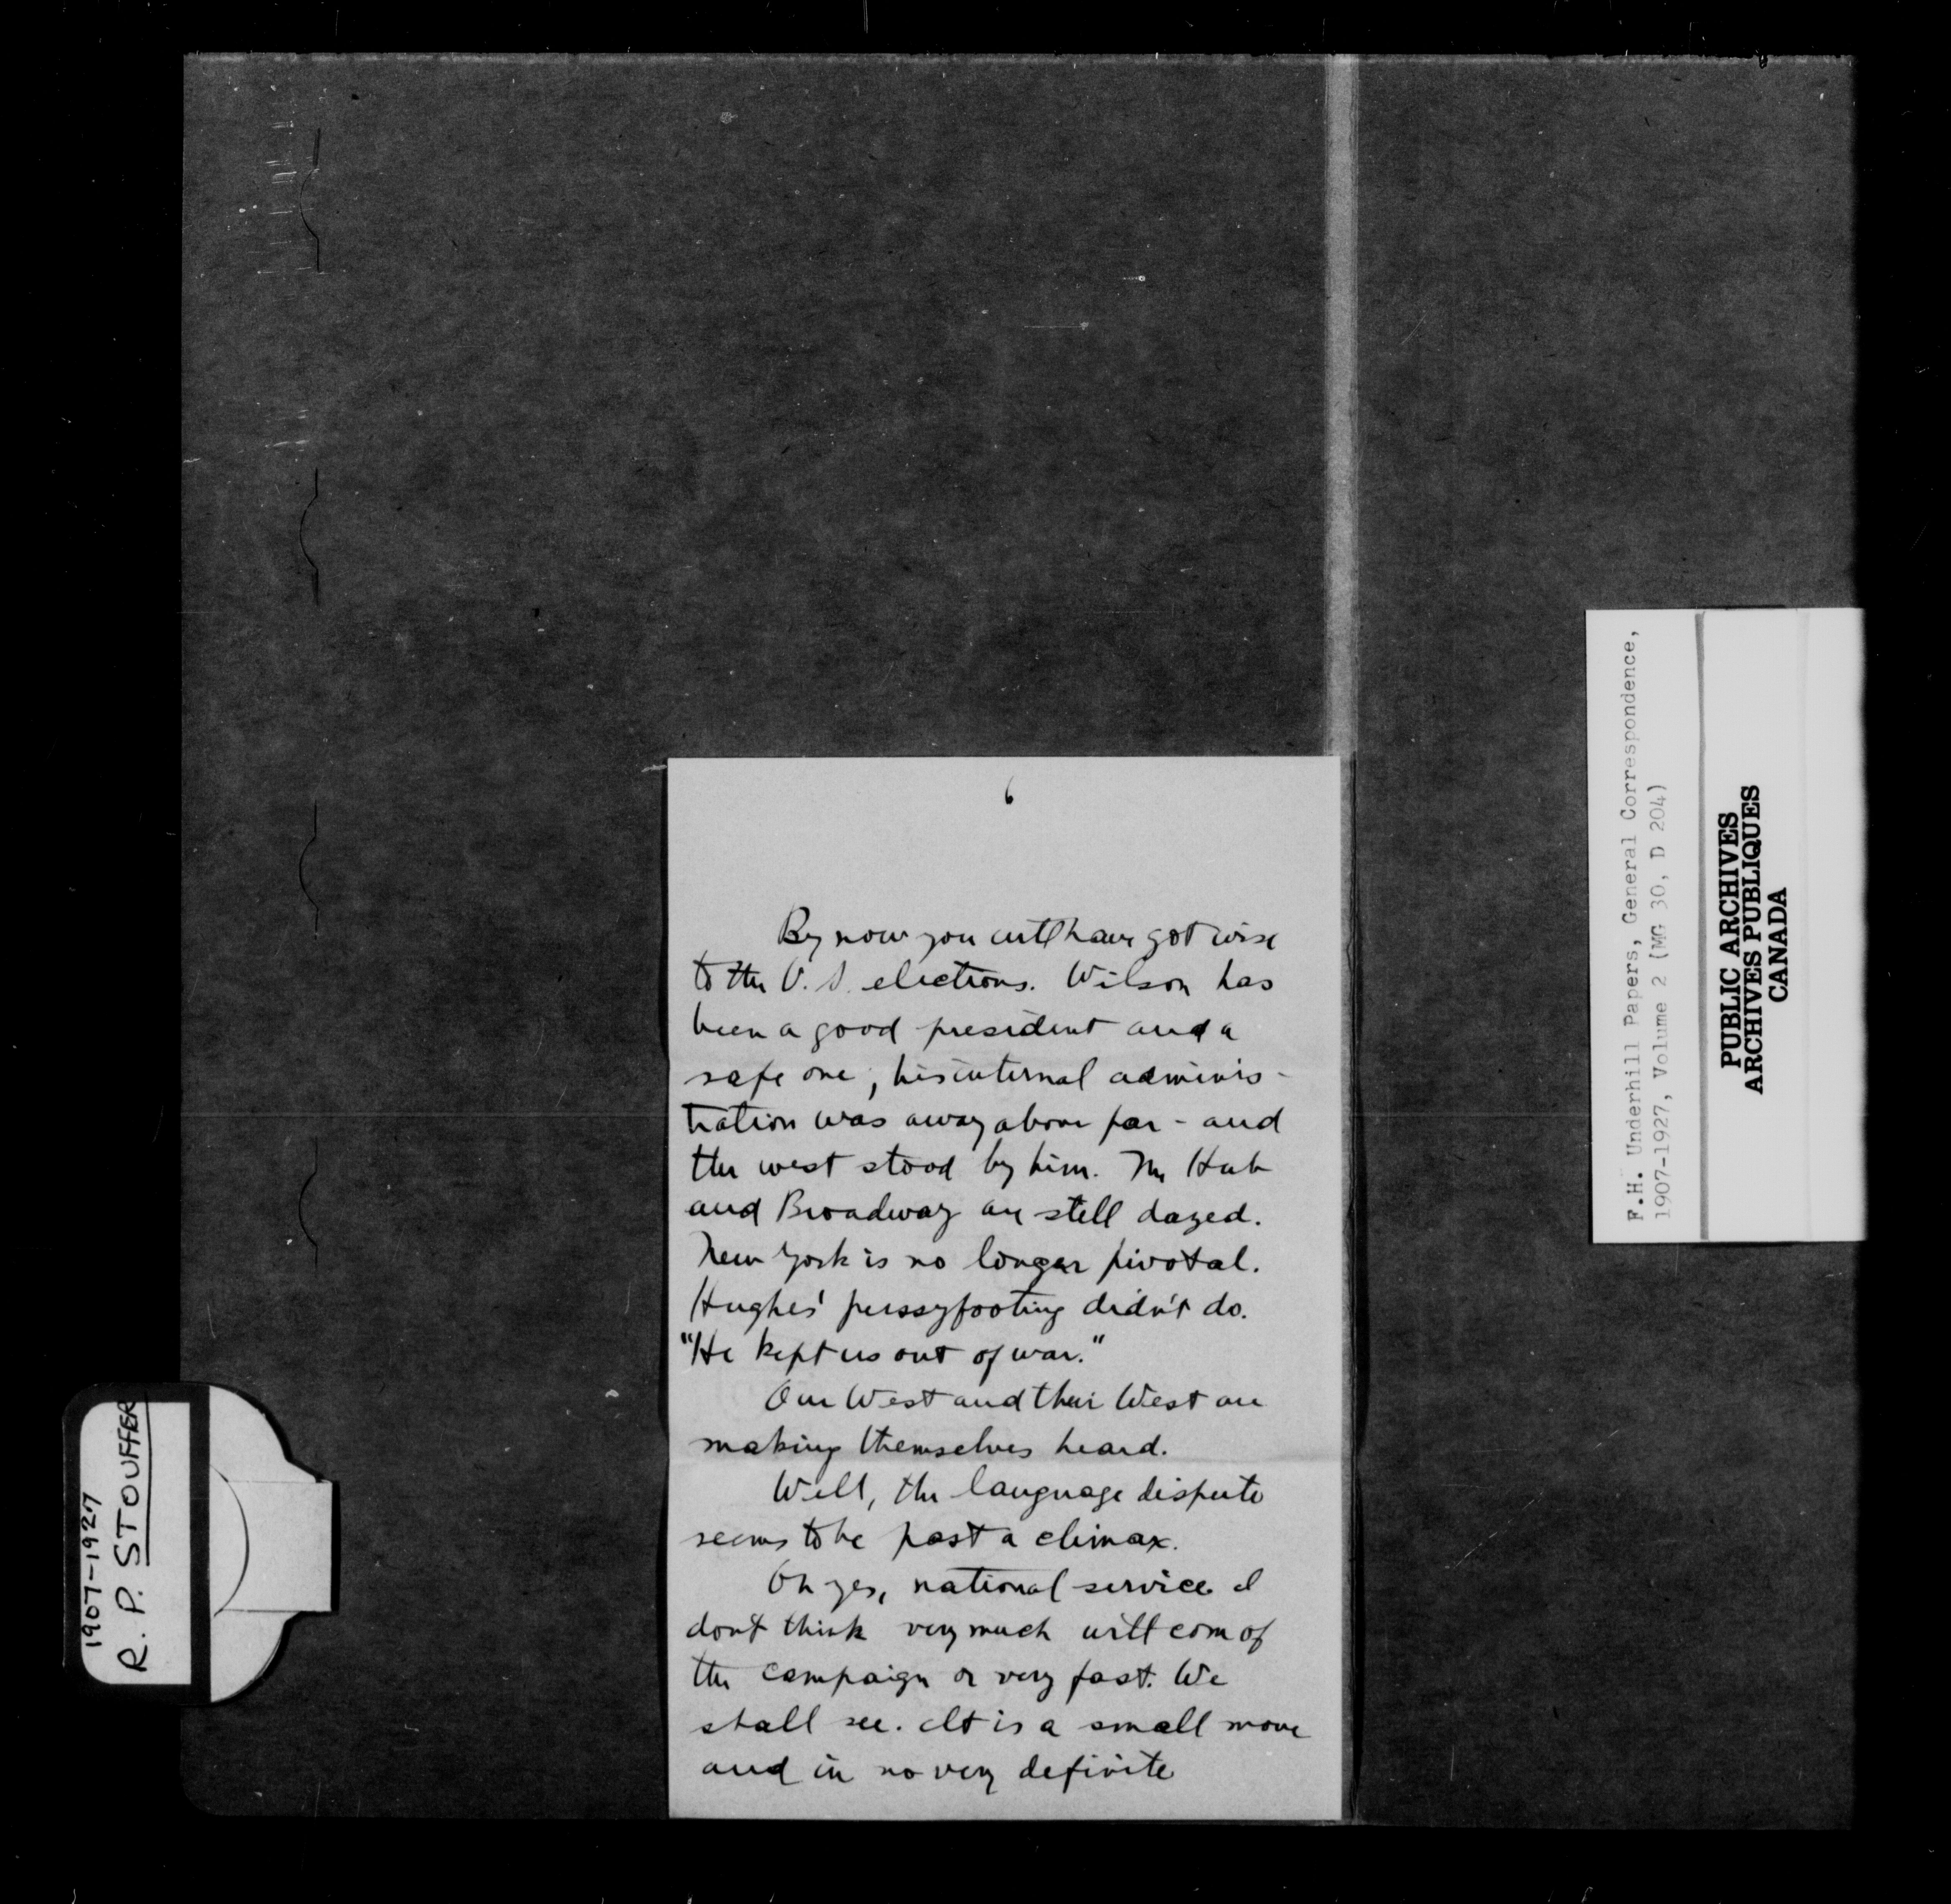 6
By now you will have got wise
to the U.S. elections. Wilson has
been a good president and a
safe one, his internal adminis-
tration was away above par - and
the west stood by him. The Hub
and Broadway are still dazed.
New York is no longer pivotal.
Hughes' pussyfooting didn't do.
"He kept us out of war."
Our West and their West are
making themselves heard.
Well, the language dispute
seems to be past a climax.
Oh yes, national service I
don't think very much will come of
the campaign or very fast. We
shall see. It is a small move
and in no very definite
1907-1927
R. P. STOUFFER
F.H. Underhill Papers, General Correspondence,
1907-1927, Volume 2 (MG 30, D 204)
PUBLIC ARCHIVES
ARCHIVES PUBLIQUES
CANADA